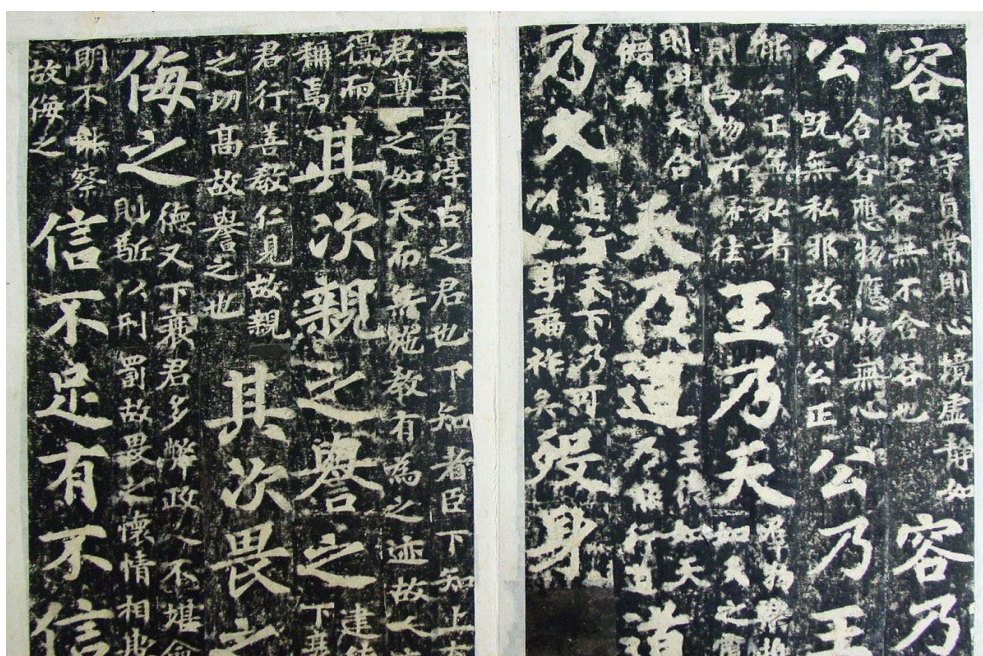 容
知守真常則心境虛靜如
彼空谷無不含容也
容乃
公
含容應物應物無心
既無私邪故為公正
公乃王
能公正無私者
則為物所歸往
王乃天
群物樂推
如天之覆
則與天合
德矣
天乃道
王德如天
乃能行道
道
乃久
道行天下乃可
以久享福祚矣
歿身
太上者淳古之君也下知者臣下知上有
君尊之如天而無施教有為之迹故人
得而
稱焉
其次親之譽之
逮德
下衰
君行善教仁見故親
之功高故譽之也
其次畏之
侮之
德又下衰君多弊政人不堪命
則驅以刑罰故畏之懷情相欺
明不能察
故侮之
信不足有不信